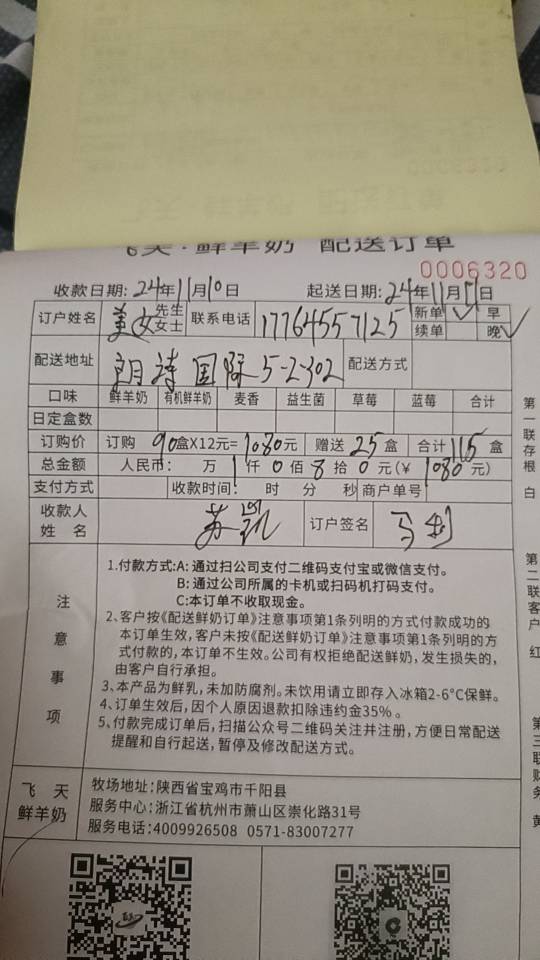 飞天·鲜羊奶 配送订单
0006320
收款日期:24年11月10日 起送日期:24年11月11日
订户姓名 美女 先生 女士 联系电话 17764557125 新单 ✓ 早
续单 晚 ✓
配送地址 朗诗国际5-2-302 配送方式
口味 鲜羊奶 有机鲜羊奶 麦香 益生菌 草莓 蓝莓 合计
日定盒数
订购价 订购 90盒X12元=1080元 赠送 25盒 合计 115盒
总金额 人民币: 万 1仟0佰8拾0元(¥ 1080元)
支付方式 收款时间: 时 分 秒 商户单号
收款人姓名 苏凯 订户签名
注意事项
1.付款方式:A:通过扫公司支付二维码支付宝或微信支付。
B:通过公司所属的卡机或扫码机打码支付。
C:本订单不收取现金。
2、客户按《配送鲜奶订单》注意事项第1条列明的方式付款成功的
本订单生效,客户未按《配送鲜奶订单》注意事项第1条列明的方
式付款的,本订单不生效。公司有权拒绝配送鲜奶,发生损失的,
由客户自行承担。
3、本产品为鲜乳,未加防腐剂。未饮用请立即存入冰箱2-6°C保鲜。
4、订单生效后,因个人原因退款扣除违约金35%。
5、付款完成订单后,扫描公众号二维码关注并注册,方便日常配送
提醒和自行起送,暂停及修改配送方式。
飞天
鲜羊奶
牧场地址:陕西省宝鸡市千阳县
服务中心:浙江省杭州市萧山区崇化路31号
服务电话:4009926508 0571-83007277
第一联存根 白
第二联客户 红
第三联财务 黄